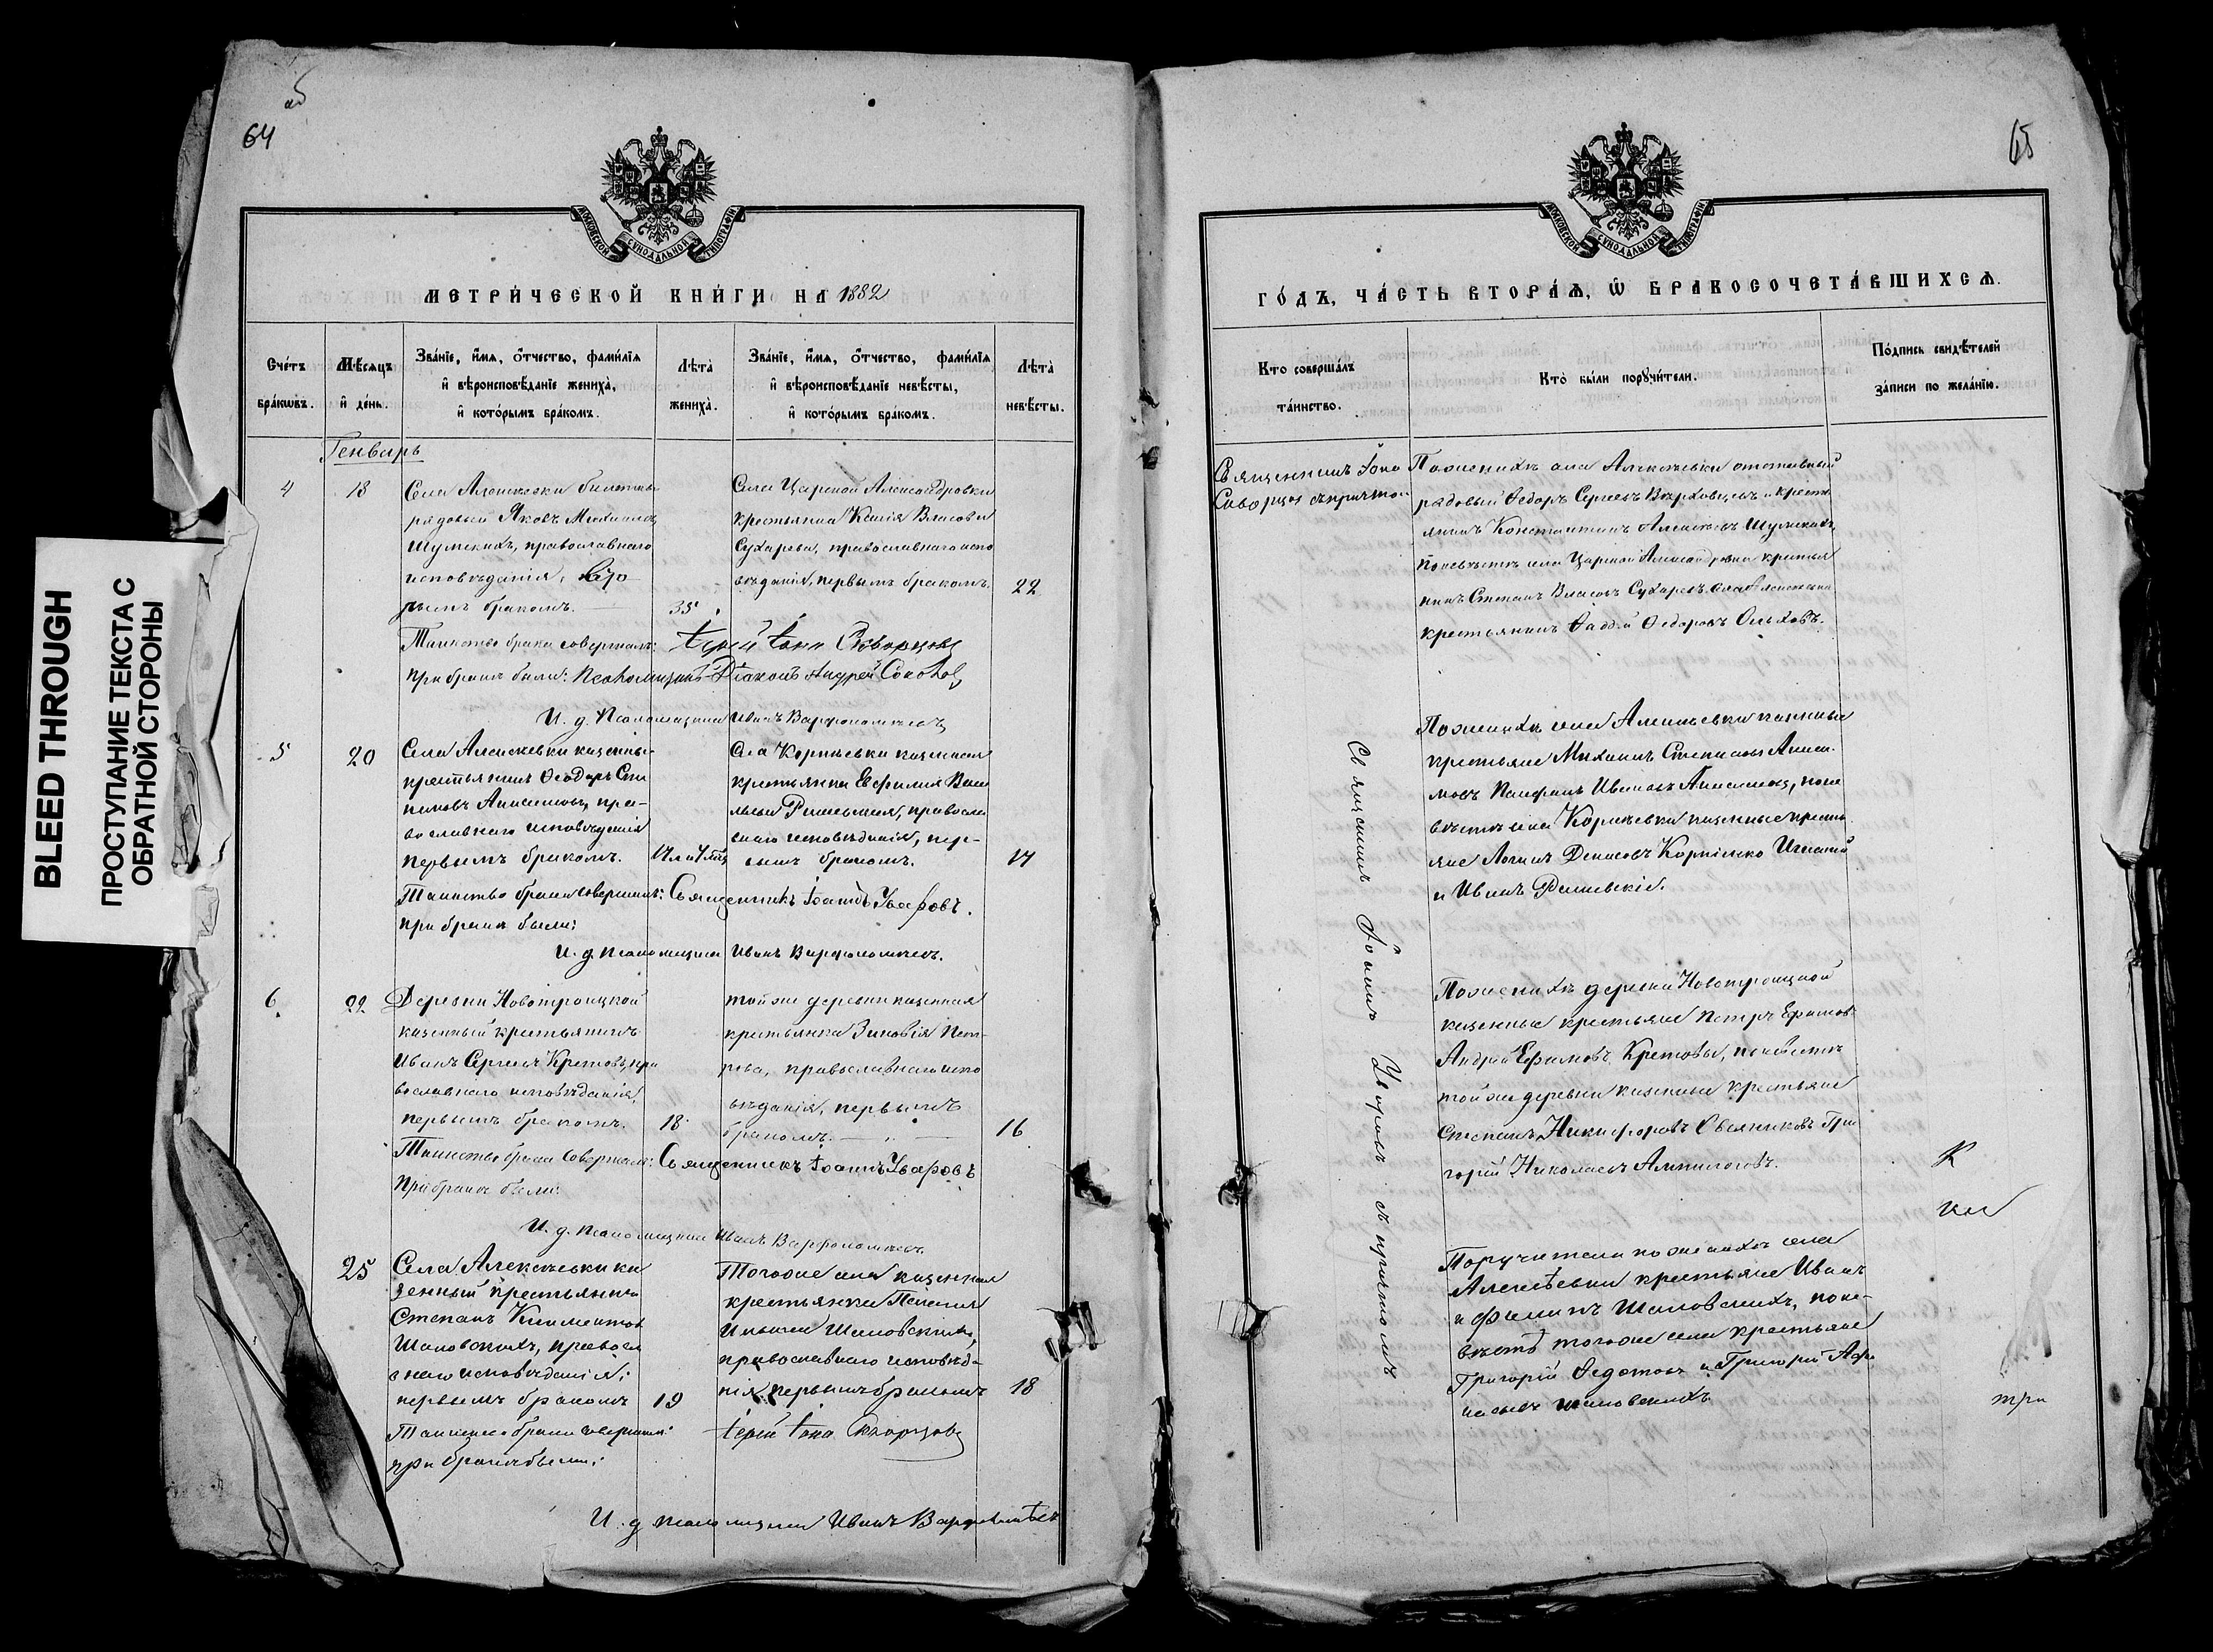 64
65
BLEED THROUGH
ПРОСТУПАНИЕ ТЕКСТА С
ОБРАТНОЙ СТОРОНЫ
МОСКОВСКОЙ СУНОДАЛЬНОЙ ТИПОГРАФІИ
МЕТРИ́ЧЕСКОЙ КНИ́ГИ НА 1882
Сче́тъ бра́кѡвъ.
Мѣ́сяцъ и де́нь.
Зва́нїе, и́мя, о́тчество, фами́лїя и вѣроисповѣ́данїе жениха̀, и кото́рымъ бра́комъ.
Лѣта̀ жениха̀.
Зва́нїе, и́мя, о́тчество, фами́лїя и вѣроисповѣ́данїе невѣ́сты, и кото́рымъ бра́комъ.
Лѣта̀ невѣ́сты.
Генварь
4
13
Села Алексѣевки билетный
рядовый Яковъ Михаиловъ
Шумскихъ, православнаго
исповѣданія, вто
рымъ бракомъ.
35
Села Царской Александровки
крестьянка Ксенія Власова
Сухарева, православнаго испо
вѣданія, первымъ бракомъ.
22
Таинство брака совершалъ: Іерей Іона Скворцовъ
при бракѣ были: Псаломщикъ Діаконъ Андрей Соколовъ
И. д. Псаломщика Иванъ Варфоломѣевъ
5
20
Села Алексѣевки казенный
крестьянинъ Ѳеодоръ Сте
пановъ Анисимовъ, пра-
вославнаго исповѣданія
первымъ бракомъ.
Села Корнѣевки казенная
крестьянка Евфимія
православ
наго исповѣданія, пер-
вымъ бракомъ.
17
Таинство брака совершалъ: Священникъ Іоаннъ Уваровъ.
при бракѣ были:
И. д. псаломщика Иванъ Варфоломѣевъ.
6.
22
Деревни Новотроицкой
казенный крестьянинъ
Иванъ Сергѣевъ Кретовъ, пра
вославнаго исповѣданія,
первымъ бракомъ.
18
той же деревни казенная
крестьянка Зиновія Пет-
рова, православнаго испо
вѣданія, первымъ
бракомъ.
16
Таинство брака совершалъ: Священникъ Іоаннъ Уваровъ
При бракѣ были:
И. д. псаломщика Иванъ Варфоломѣевъ
25
Села Алексѣевки ка
зенный крестьянинъ
Степанъ Климентовъ
Шаповскихъ, правосла
внаго исповѣданія;
первымъ бракомъ
19
Тогоже села казенная
крестьянка Пелагія
Ильина Шаповскихъ,
православнаго исповѣда-
нія первымъ бракомъ
18
Таинство брака совершалъ: Іерей Іона Скворцовъ
при бракѣ были:
И. д. псаломщика Иванъ Варфоломѣевъ
МОСКОВСКОЙ СУНОДАЛЬНОЙ ТИПОГРАФІИ
ГО́ДЪ, ЧА́СТЬ ВТОРА́Я, Ѡ БРАКОСОЧЕТА́ВШИХСЯ.
Кто̀ соверша́лъ та́инство.
Кто̀ бы́ли порꙋчи́тели.
По́дпись свидѣ́телей за́писи по жела́нїю.
Священникъ Іона
Скворцовъ съ причтомъ
По женихѣ села Алексѣевки отставный
рядовый Ѳедоръ Сергѣевъ и кресть
янинъ Константинъ Алексѣевъ Шумскихъ,
По невѣстѣ села Царской Александровки крестья
нинъ Степанъ Власовъ Сухаревъ, села Алексѣевки
крестьянинъ Ѳаддей Ѳедоровъ Ольховъ.
Священникъ Іоаннъ Уваровъ съ причтомъ
По женихѣ села Алексѣевки казенные
крестьяне Михаилъ Степановъ Аниси-
мовъ Панфилъ Ивановъ Анисимовъ, по не
вѣстѣ села Корнѣевки казенные кресть
яне Логинъ Денисовъ Корніенко Игнатій
и Иванъ
По женихѣ деревни Новотроицкой
казенные крестьяне Петръ
Андрей Ефимовъ Кретовы, по невѣстѣ
той же деревни казенные крестьяне
Степанъ Никифоровъ Овсянниковъ Гри
горій Николаевъ Ампилоговъ.
Поручители по женихѣ села
Алексѣевки крестьяне Иванъ
и Филипъ Шаповскихъ, по не-
вѣстѣ тогоже села крестьяне
Григорій Ѳедотовъ и Григорій Афа
насьевъ Шаповскихъ
К
три